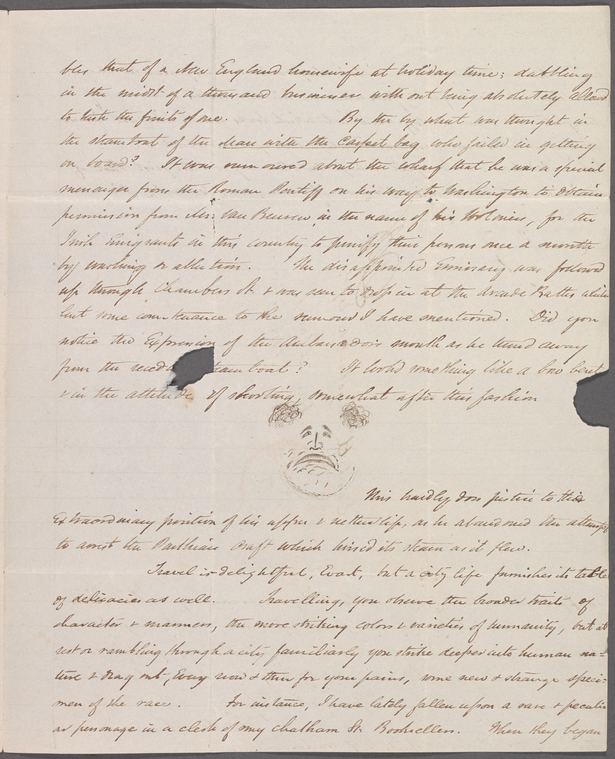 bles that of a New England housewife at holiday time; dabbling
in the midst of a thousand businesses without being absolutely allowed
to taste the fruits of one. By the by what was thought in
the steamboat of the man with the carpet bag who failed in getting
on board? It was rumoured about the wharf that he was a special
messenger from the Roman Pontiff on his way to Washington to obtain
permission from Mr. Van Beuren in the name of his Holiness, for the
Irish Emigrants in this country to purify their persons once a month
by washing or ablution. The disappointed Emissary was followed
up through Chambers St. & was seen to drop in at the Arcade Baths which
lent some countenance to the rumour I have mentioned. Did you
notice the Expression of the Ambassador's mouth as he turned away
from the steam boat? It looked something like a bow bent
& in the attitude of shooting, somewhat after this fashion
This hardly does justice to the
Extraordinary position of his upper & nether lip, as he abandoned the attempt
to arrest the Parthian craft which hissed its steam as it flew.
Travel is delightful, Evart, but a city life furnishes its table
of delicacies as well. Travelling, you observe the broader traits of
character & manners, the more striking colors & varieties of humanity, but at
rest or rambling through a city familiarly you strike deeper into human na-
ture & drag out, Every now & then for your pains, some new & strange speci-
men of the race. For instance, I have lately fallen upon a rare & peculi-
ar personage in a clerk of my Chatham St. Booksellers. When they began